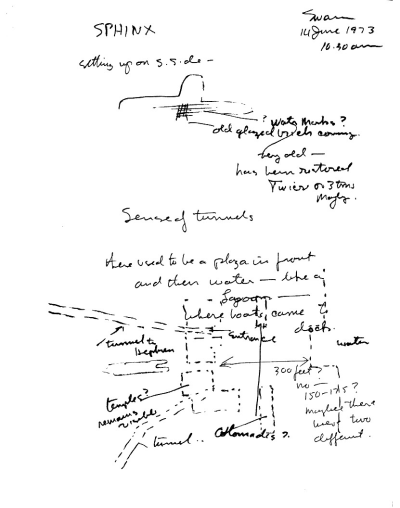 SPHINX
Swann
14 June 1973
10.30 am
setting up on S. Side -
? Water Marks?
old glazed brick coming.
Very old —
has been restored
Twice or 3 times
Maybe.
Sense of tunnels
Here used to be a plaza in front
and then water — like a
Lagoon —
where boats came to
dock.
Entrance
water
tunnel to
Kephren
300 feet?
no —
150-175?
maybe there
were two
different.
temples?
remains
visible
tunnel..
Colonnades?